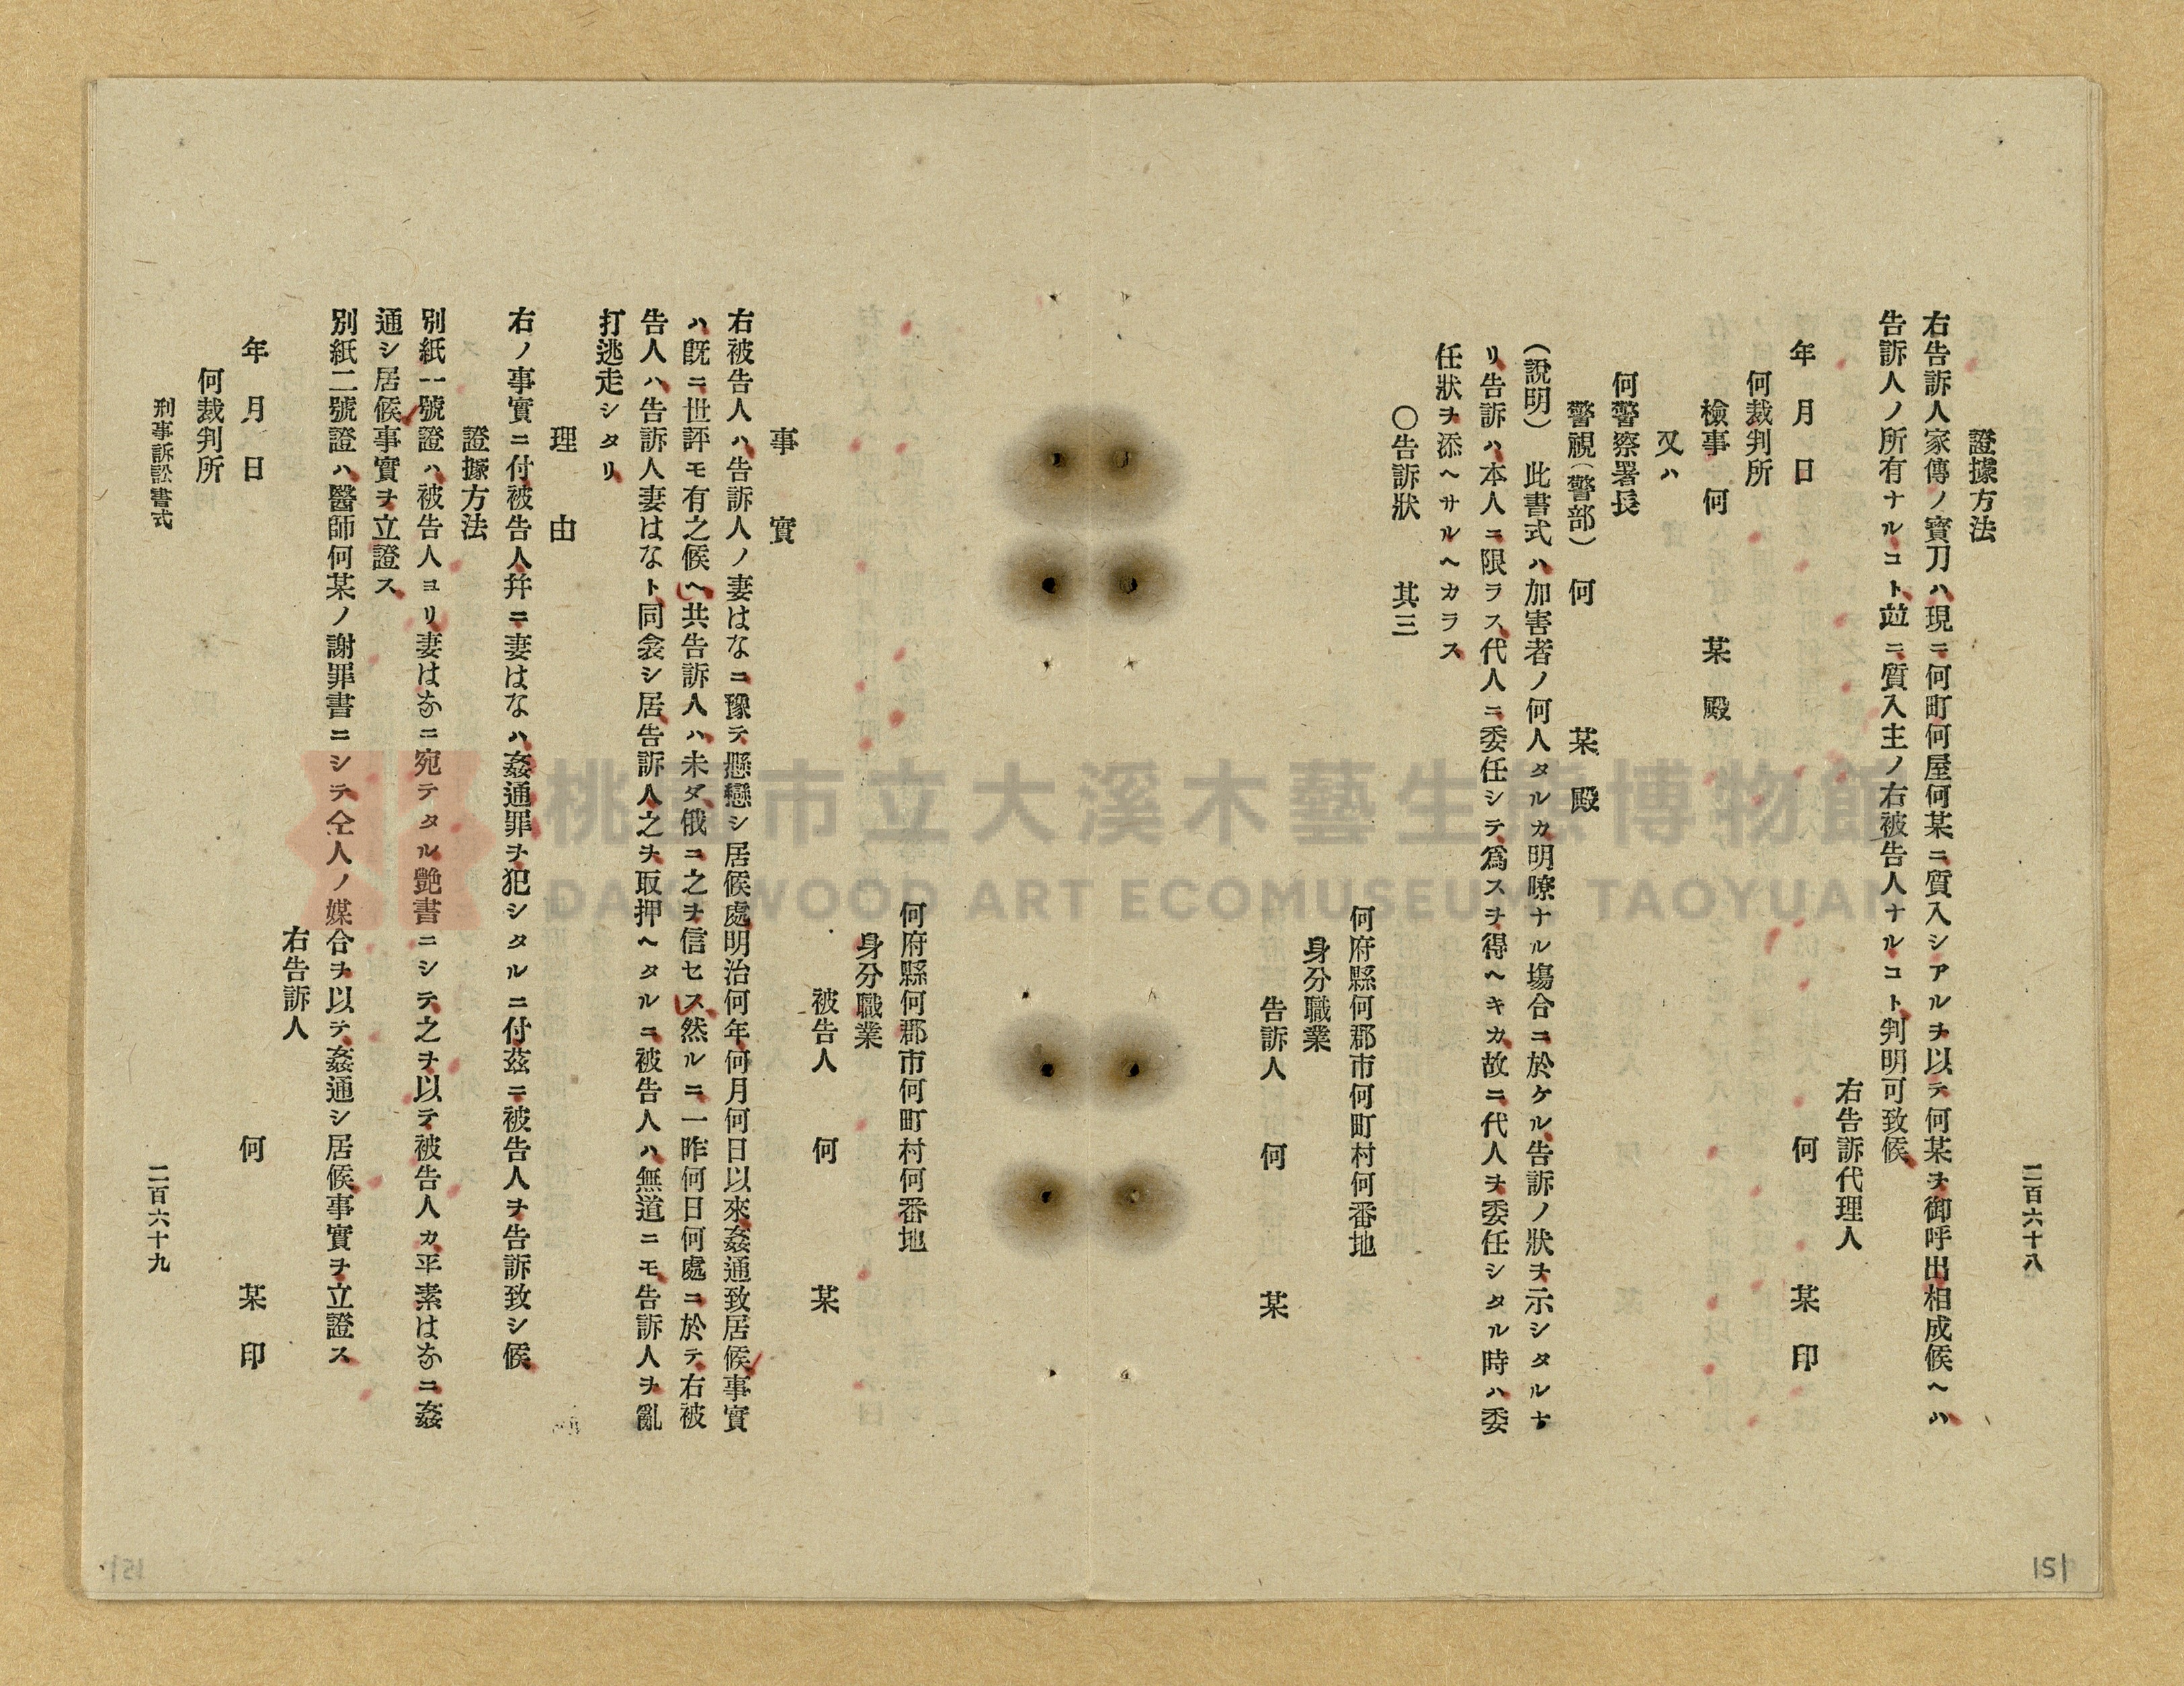 二百六十八
證據方法
右告訴人家傳ノ寶刀ハ現ニ何町何屋何某ニ質入シアルヲ以テ何某ヲ御呼出相成候ヘハ
告訴人ノ所有ナルコト並ニ質入主ノ右被告人ナルコト判明可致候
右告訴代理人
年 月 日 何 某 印
何裁判所
檢事 何 某 殿
又ハ
何警察署長
警視(警部) 何 某 殿
(說明) 此書式ハ加害者ノ何人タルカ明瞭ナル塲合ニ於ケル告訴ノ狀ヲ示シタルナ
リ告訴ハ本人ニ限ラス代人ニ委任シテ爲スヲ得ヘキカ故ニ代人ヲ委任シタル時ハ委
任狀ヲ添ヘサルヘカラス
〇告訴狀 其三
何府縣何郡市何町村何番地
身分職業
告訴人 何 某
何府縣何郡市何町村何番地
身分職業
被告人 何 某
事 實
右被告人ハ告訴人ノ妻はなニ豫テ懸戀シ居候處明治何年何月何日以來姦通致居候事實
ハ既ニ世評モ有之候ヘ共告訴人ハ未ダ俄ニ之ヲ信セス然ルニ一昨何日何處ニ於テ右被
告人ハ告訴人妻はなト同衾シ居告訴人之ヲ取押ヘタルニ被告人ハ無道ニモ告訴人ヲ亂
打逃走シタリ
理 由
右ノ事實ニ付被告人幷ニ妻はなハ姦通罪ヲ犯シタルニ付茲ニ被告人ヲ告訴致シ候
證據方法
別紙一號證ハ被告人ヨリ妻はなニ宛テタル艶書ニシテ之ヲ以テ被告人カ平素はなニ姦
通シ居候事實ヲ立證ス
別紙二號證ハ醫師何某ノ謝罪書ニシテ仝人ノ媒合ヲ以テ姦通シ居候事實ヲ立證ス
右告訴人
年 月 日 何 某 印
何裁判所
刑事訴訟書式
二百六十九
151
桃園市立大溪木藝生態博物館
DAXI WOOD ART ECOMUSEUM, TAOYUAN